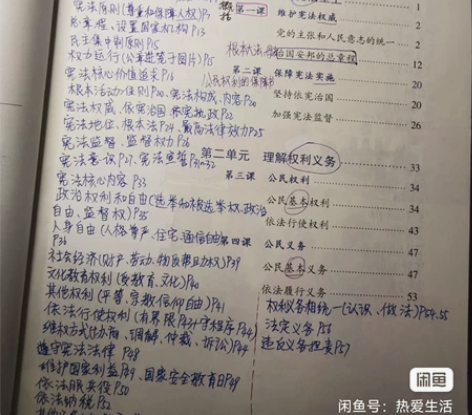 宪法原则(尊重和保障人权)P7
总章程、设置国家机构 P13
民主集中制原则P15
权力运行(公章进笼子图片)P5
宪法核心价值追求 P16
根本活动准则P20、宪法构成、内容P20
宪法权威、依宪治国 依宪执政P22
宪法地位、根本法P24、最高法律效力P25
宪法监督、监督权力P26
宪法意识P27、宪法宣誓P31-32
宪法核心内容 P33
政治权利和自由(选举和被选举权、政治
自由、监督权)P35
人身自由(人格尊严、住宅、通信自由
P36
社会经济(财产、劳动、物质帮助权)P39
文化教育权利(受教育、文化)P40
其他权利(平等、宗教信仰自由)P41
依法行使权利(有界限P43、守程序P44)
维权方式(协商、调解、仲裁、诉讼)P44
遵守宪法法律 P48
维护国家利益P49、国家安全教育日P49
依法服兵役 P50
依法纳税 P52
概括
第一课
维护宪法权威 2
党的主张和人民意志的统一 2
治国安邦的总章程 12
根本法
第二课
保障宪法实施 20
公民权利的保障书
坚持依宪治国 20
加强宪法监督 26
第二单元 理解权利义务 33
第三课
公民权利 34
公民基本权利 34
依法行使权利 43
第四课
公民义务 47
公民基本义务 47
依法履行义务 53
权利义务相统一(认识、做法)P54、55
法定义务P56
违反义务担责P57
闲鱼
闲鱼号：热爱生活